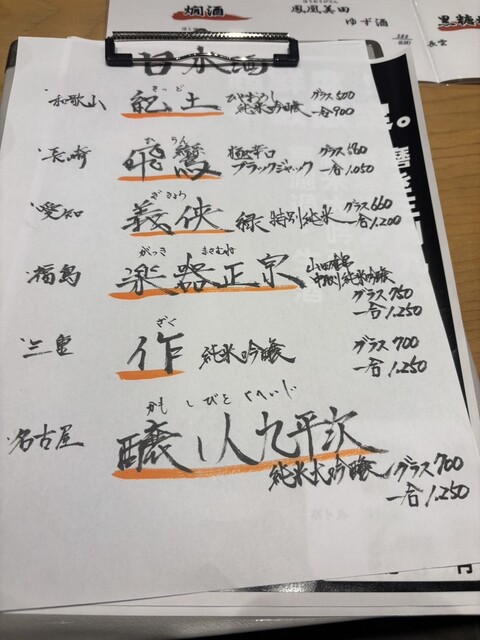 燗酒
鳳凰美田
ゆず酒
黒糖
日本酒
和歌山 きっど 紀土 ひやおろし 純米吟醸 グラス 500 一合 900
長崎 ひらん 飛鸞 極辛口 ブラックジャック グラス 580 一合 1,050
愛知 ぎきょう 義侠 緑 特別純米 グラス 660 一合 1,200
福島 がっき まさむね 楽器正宗 山田穂 中取り純米吟醸
グラス 750
一合 1,250
三重 ざく 作 純米吟醸 グラス 700
一合 1,250
名古屋 かもしびと くへいじ
醸し人九平次
純米大吟醸 グラス 700
一合 1,250
円